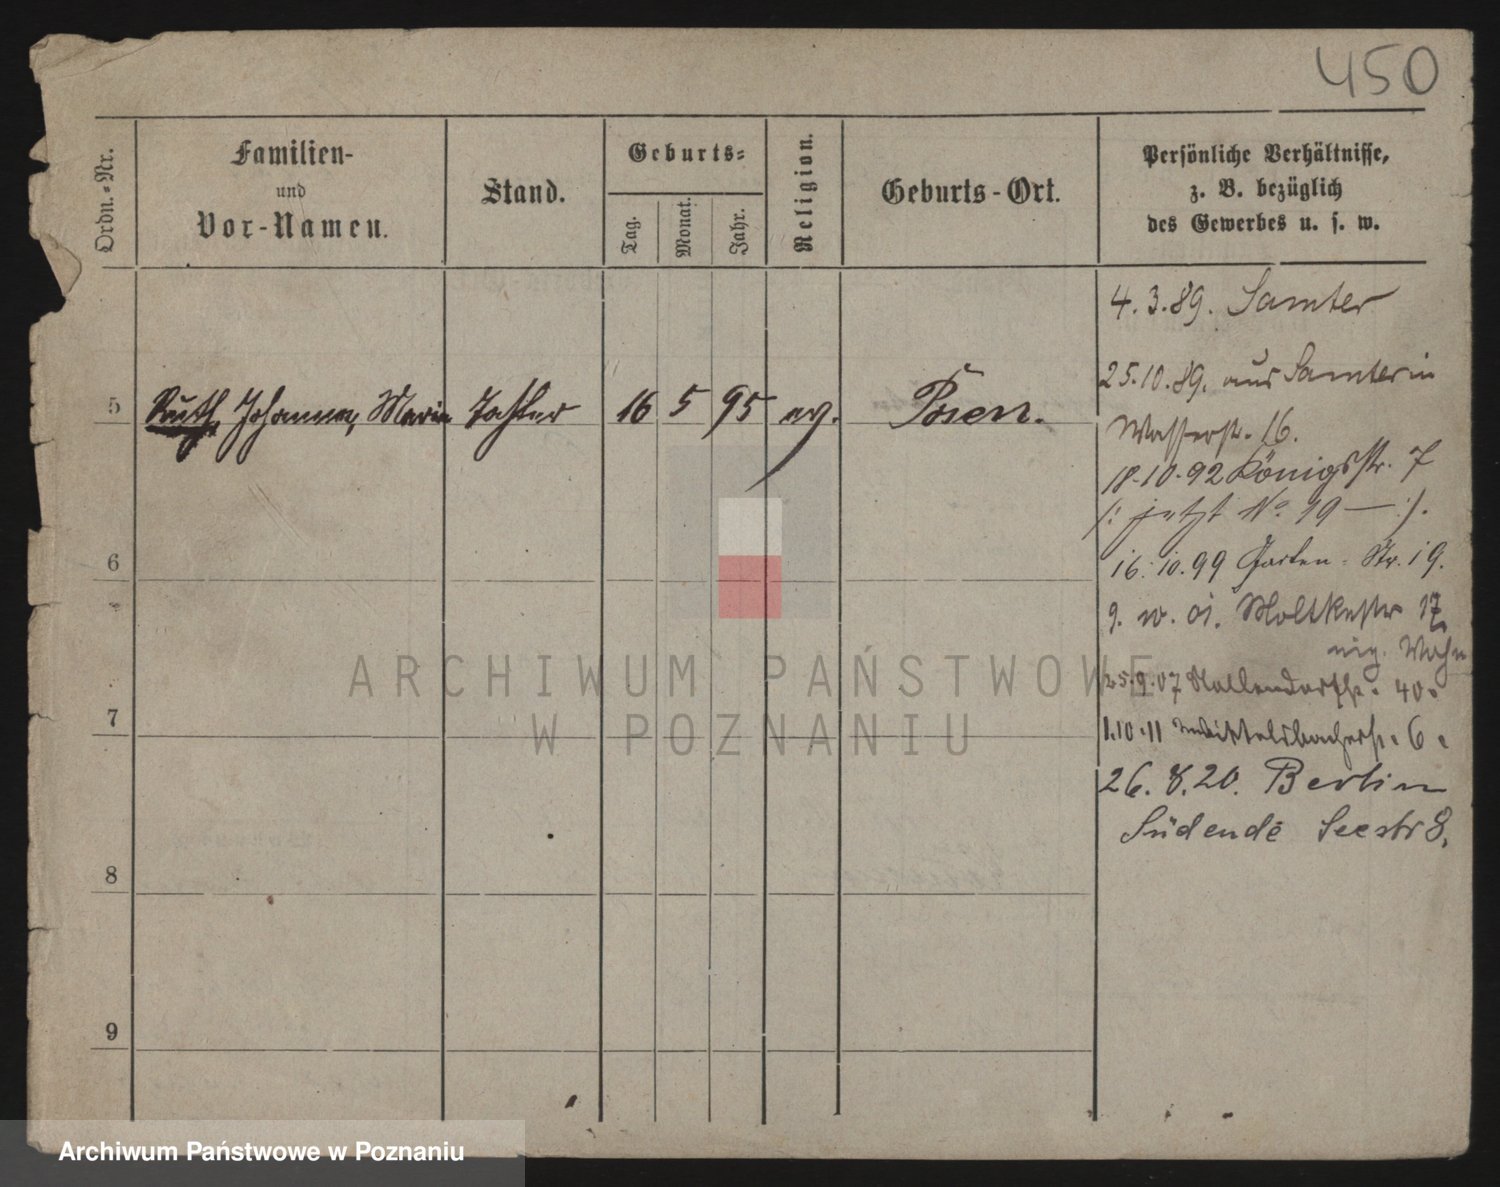 450
Ordn.-Nr.
Familien-
und
Vor-Namen.
Stand.
Geburts-
Tag.
Monat.
Jahr.
Religion.
Geburts-Ort.
Persönliche Verhältnisse,
z. B. bezüglich
des Gewerbes u. s. w.
4. 3. 89. Samter
25. 10. 89. aus Samter in
5 Ruth, Johanna, Marie Tochter 16 5 95 ev. Posen.
Wasserstr. 16.
18. 10. 92 Königsstr. 7
(: jetzt No 19 — :).
16. 10. 99 Garten-Str. 19.
6
9. 01. Moltkestr 17
eig. Wohn
25. 9. 07 Nollendorfstr. 40.
7
1. 10. 11 Wittelsbacherstr. 6.
26. 8. 20. Berlin
Südende Seestr 8.
8
9
ARCHIWUM PAŃSTWOWE
W POZNANIU
Archiwum Państwowe w Poznaniu